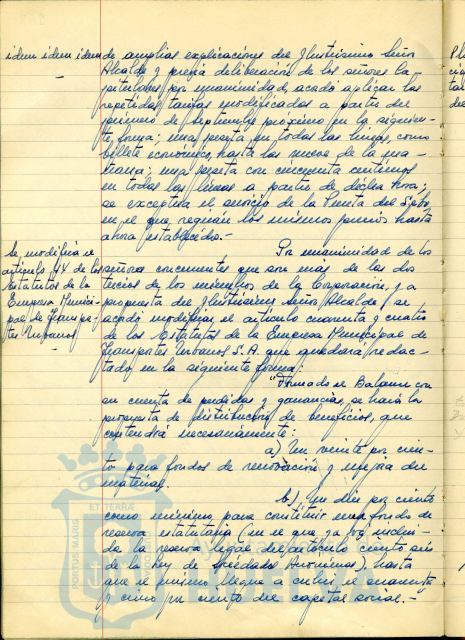 idem idem idem de amplias explicaciones del Ilustrisimo Señor
Alcalde y previa deliberación de los señores Ca-
pitulares por unanimidad, acordó aplicar las
repetidas tarifas modificadas a partir del
primero de Septiembre próximo en la siguien-
te forma: una peseta en todas las lineas, como
billete económico, hasta las nueve de la ma-
ñana; una peseta con cincuenta centimos
en todas las lineas a partir de dicha hora;
se exceptua el servicio de la Punta del Sebo,
en el que regirán los mismos precios hasta
ahora establecidos.-
Se modifica el
artículo 4X de los
Estatutos de la
Empresa Munici-
pal de Transpor-
tes Urbanos
Por unanimidad de los
señores concurrentes que son más de las dos
tercios de los miembros de la Corporación, y a
propuesta del Ilustrisimo Señor Alcalde, se
acordó modificar el artículo cuarenta y cuatro
de los Estatutos de la Empresa Municipal de
Transportes Urbanos S.A. que quedará redac-
tado en la siguiente forma:
"Formado el Balance con
su cuenta de perdidas y ganancias, se hará la
propuesta de distribución de beneficios, que
contendrá necesariamente:
a) Un veinte por cien-
to para fondos de renovación y mejora del
material.
b) Un diez por ciento
como mínimo para constituir una fondo de
reserva estatutaria (en el que ya va inclui-
da la reserva legal del artículo ciento seis
de la Ley de Sociedades Anonimas), hasta
que el mismo llegue a cubrir el cuarenta
y cinco por ciento del capital social.-
PORTUS MARIS
ET TERRAE